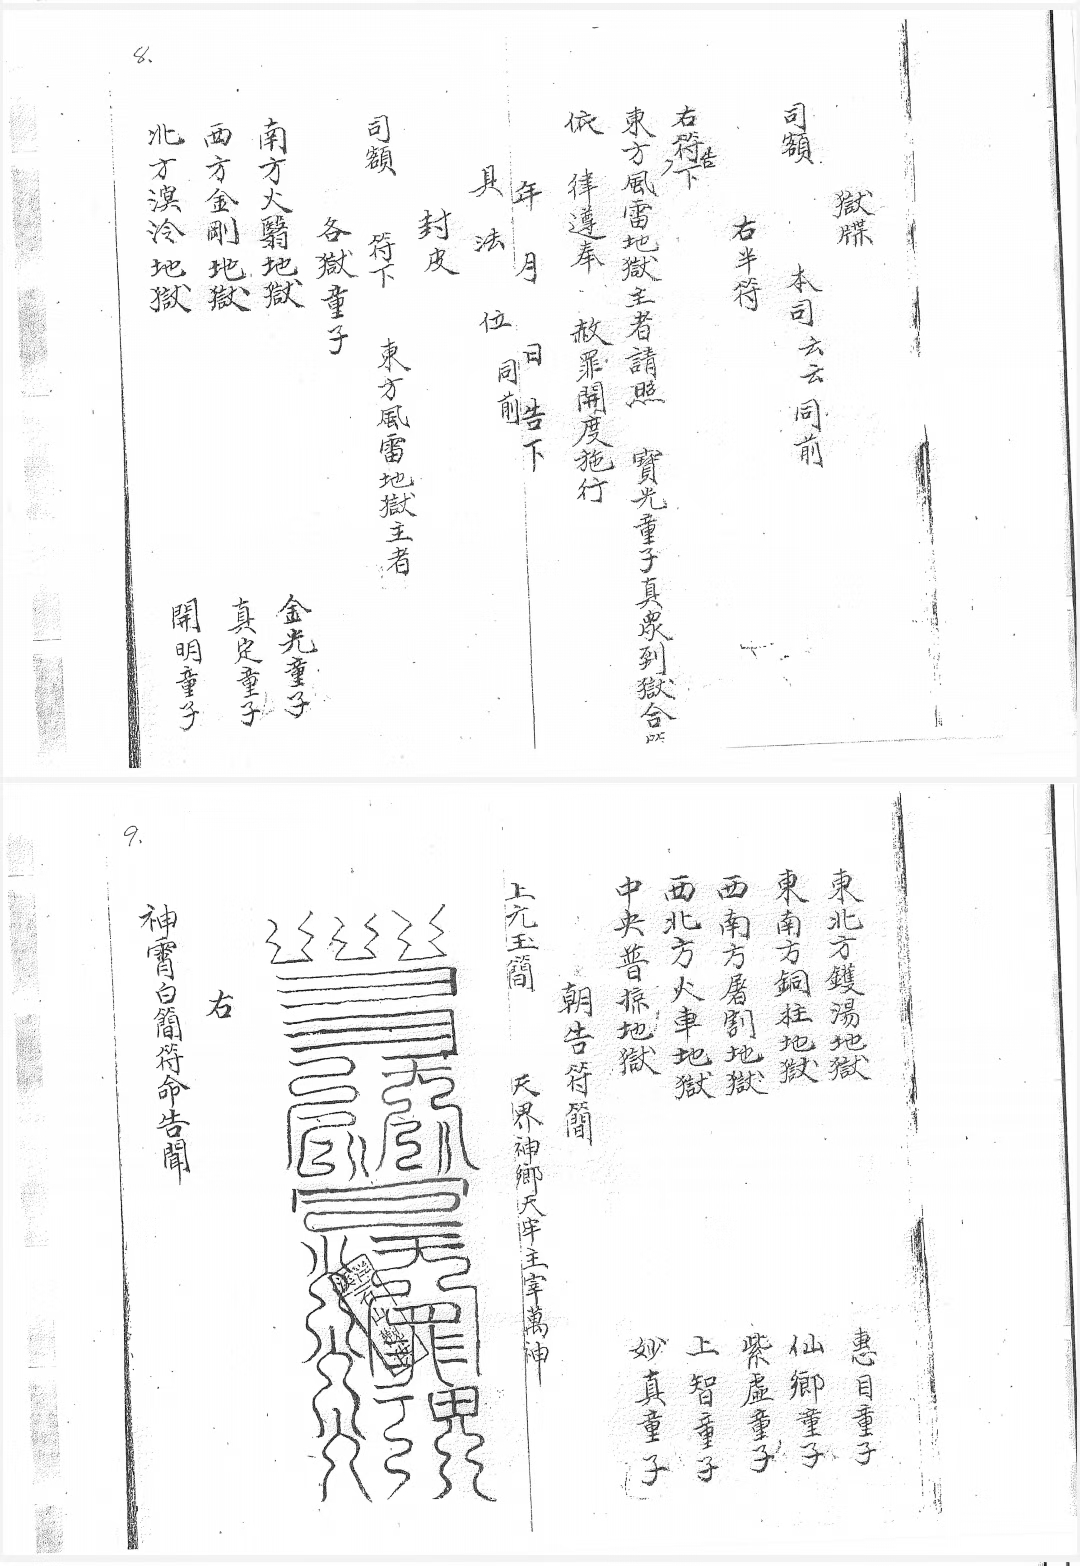 8.
獄牒
司額　本司云云同前
右半符
右符告下
東方風雷地獄主者請照　寶光童子真眾到獄合符
依　律遵奉　赦罪開度施行
年　月　日告下
具法　位同前
封皮
司額　符下　東方風雷地獄主者
各獄童子
南方火翳地獄　金光童子
西方金剛地獄　真定童子
北方溟泠地獄　開明童子
9.
東北方鑊湯地獄　惠目童子
東南方銅柱地獄　仙鄉童子
西南方屠割地獄　紫虛童子
西北方火車地獄　上智童子
中央普掠地獄　妙真童子
朝告符簡
上元玉簡　天界神鄉天牢主宰萬神
右
神霄白簡符命告聞